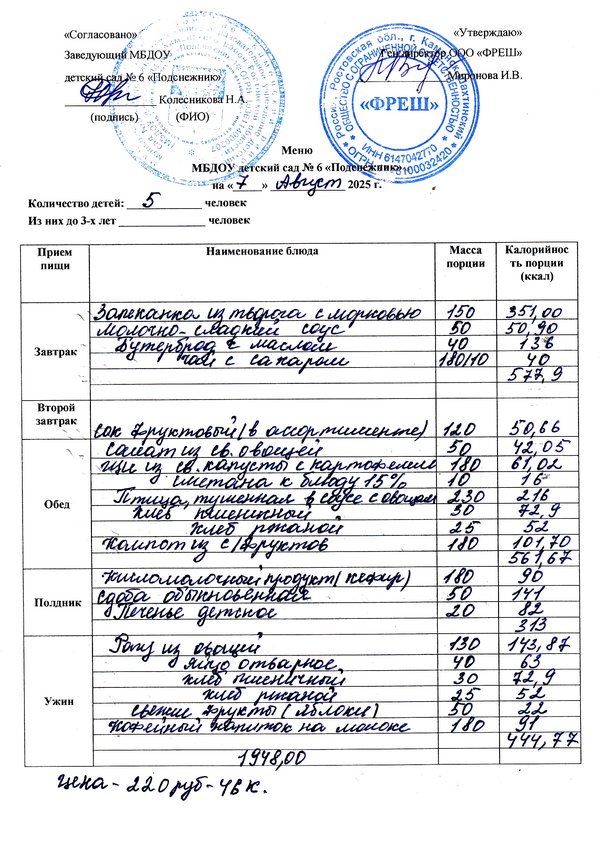 «Согласовано» «Утверждаю»
Заведующий МБДОУ Ген.директор ООО «ФРЕШ»
детский сад № 6 «Подснежник» Миронова И.В.
Колесникова Н.А.
(подпись) (ФИО)
«ФРЕШ»
ОБЩЕСТВО С ОГРАНИЧЕННОЙ ОТВЕТСТВЕННОСТЬЮ
ИНН 6147042770
Меню
МБДОУ детский сад № 6 «Подснежник»
на « 7 » Август 2025 г.
Количество детей: 5 человек
Из них до 3-х лет человек
Прием пищи Наименование блюда Масса порции Калорийнос ть порции (ккал)
Завтрак
Запеканка из творога с морковью 150 351,00
Молочно-сладкий соус 50 50,90
Бутерброд с маслом 40 136
Чай с сахаром 180/10 40
577,9
Второй завтрак
Сок фруктовый (в ассортименте) 120 50,66
Обед
Салат из св. овощей 50 42,05
Щи из св. капусты с картофелем 180 61,02
сметана к блюду 15% 10 16
Птица, тушенная в соусе с овощами 230 216
Хлеб пшеничный 30 72,9
Хлеб ржаной 25 52
Компот из с/фруктов 180 101,70
561,67
Полдник
Кисломолочный продукт (кефир) 180 90
Сдоба обыкновенная 50 141
Печенье детское 20 82
313
Ужин
Рагу из овощей 130 143,87
Яйцо отварное 40 63
Хлеб пшеничный 30 72,9
Хлеб ржаной 25 52
свежие фрукты (яблоки) 50 22
Кофейный напиток на молоке 180 91
444,77
1948,00
Цена - 220 руб - 46 к.